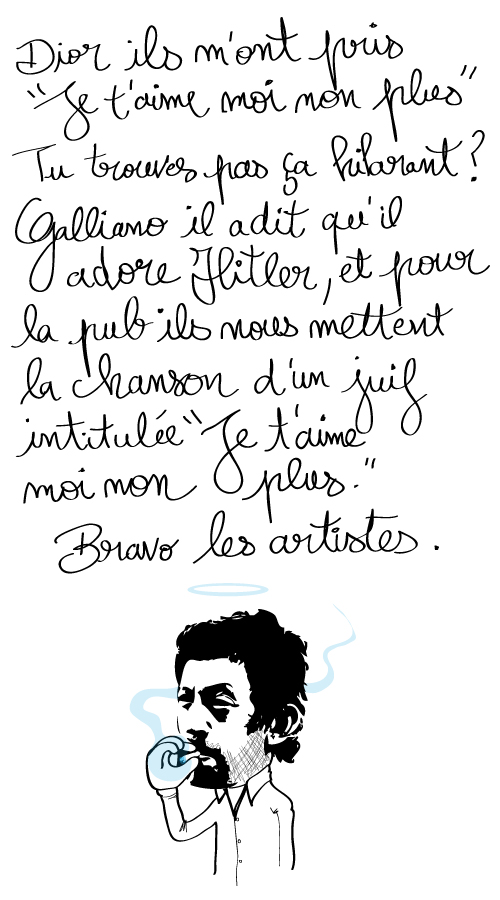 Dior ils m'ont pris
"Je t'aime moi non plus"
Tu trouves pas ça hilarant?
Galliano il a dit qu'il
adore Hitler, et pour
la pub ils nous mettent
la chanson d'un juif
intitulée "Je t'aime
moi non plus."
Bravo les artistes.